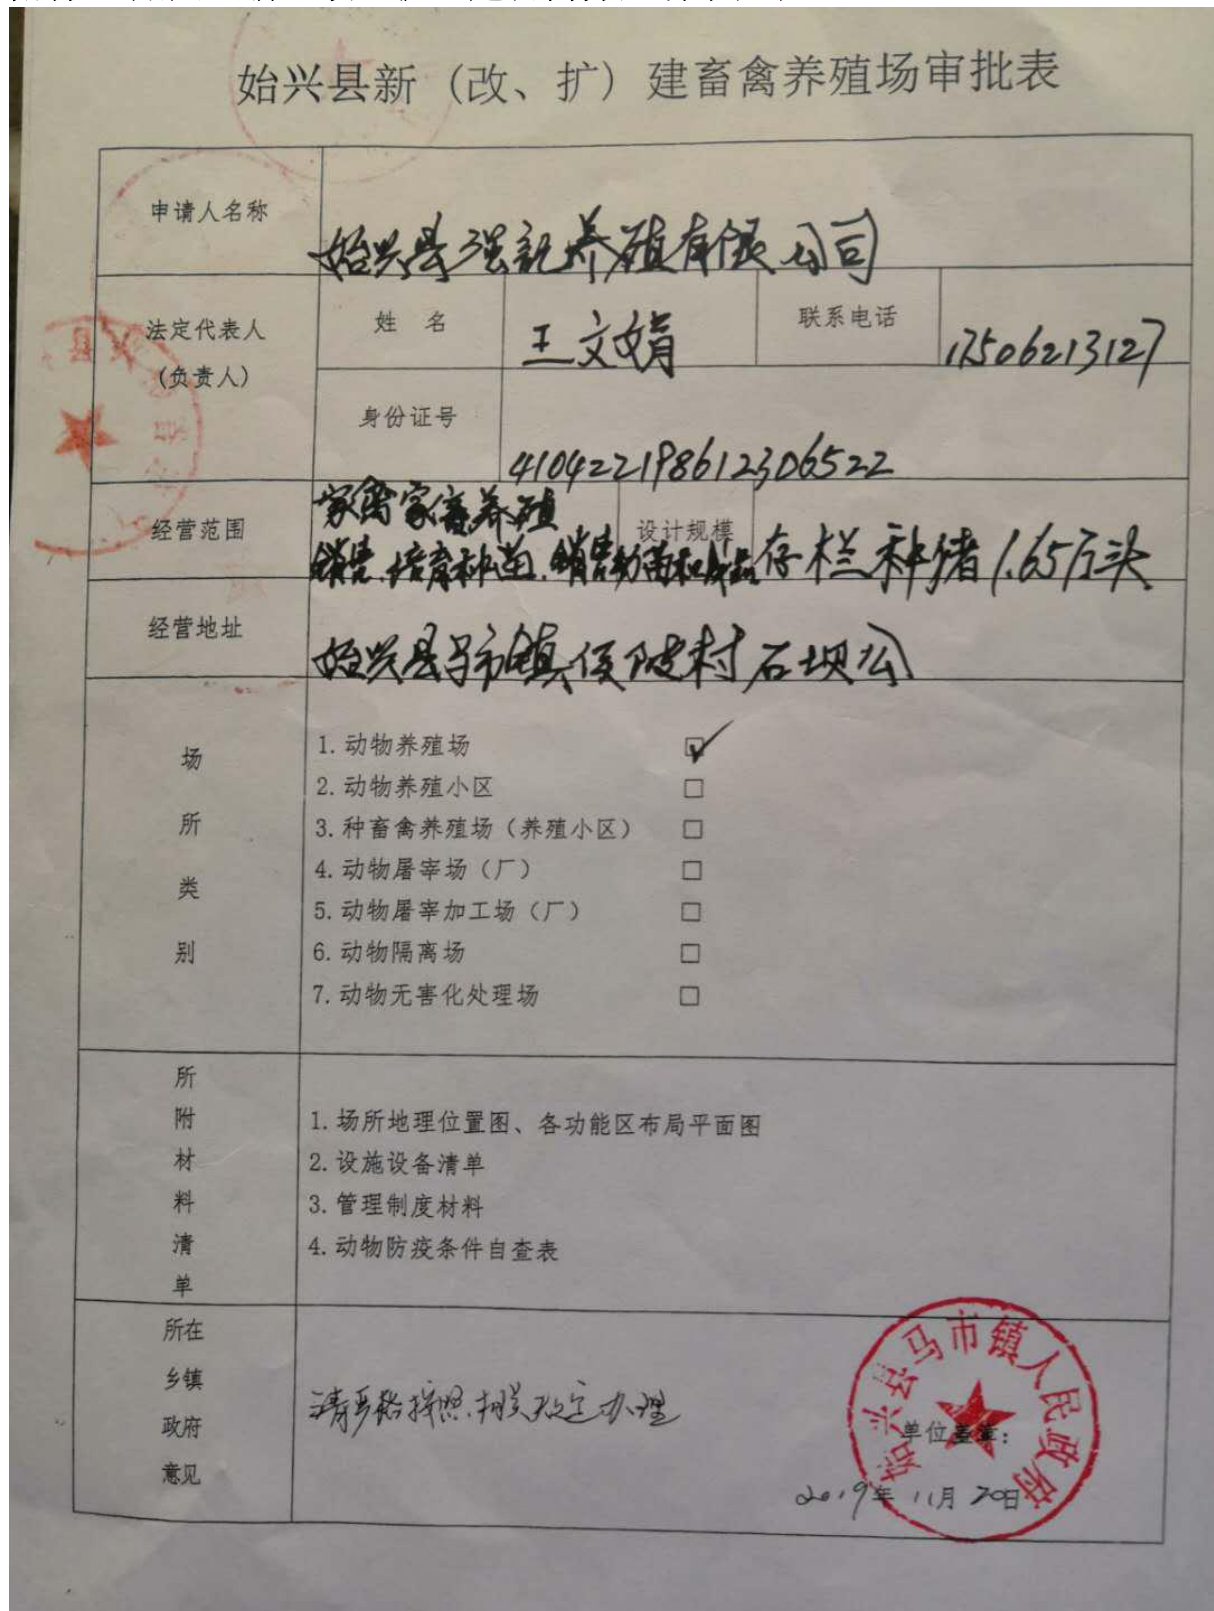 始兴县新（改、扩）建畜禽养殖场审批表
申请人名称
始兴县强記养殖有限公司
法定代表人
(负责人)
姓 名
王文娟
联系电话
17506213127
身份证号
410422198612306522
经营范围
家禽家畜养殖
销售.培育种苗.销售幼苗和成品
设计规模
存栏种猪1.65万头
经营地址
始兴县马市镇侯陂村石坝公
场所类别
1. 动物养殖场 ☑
2. 动物养殖小区 □
3. 种畜禽养殖场（养殖小区） □
4. 动物屠宰场（厂） □
5. 动物屠宰加工场（厂） □
6. 动物隔离场 □
7. 动物无害化处理场 □
所附材料清单
1. 场所地理位置图、各功能区布局平面图
2. 设施设备清单
3. 管理制度材料
4. 动物防疫条件自查表
所在
乡镇
政府
意见
请严格按照相关规定办理
始兴县马市镇人民政府
单位盖章：
2019年 11月 20日